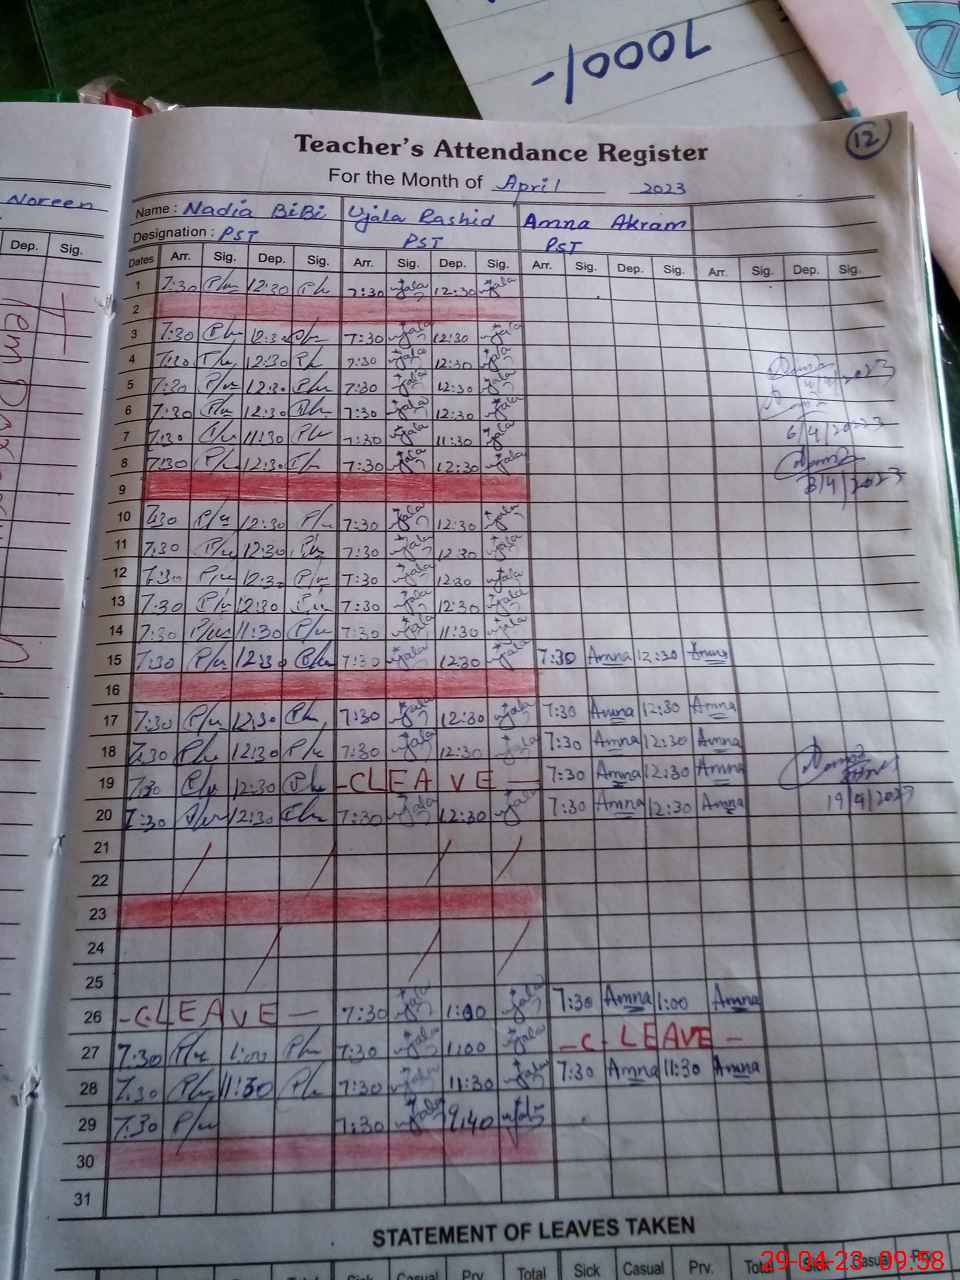 7000/-
12
Teacher's Attendance Register
For the Month of April 2023
Noreen
Name : Nadia BiBi Ujala Rashid Amna Akram
Designation : PST PST PST
Dep. Sig. Dates Arr. Sig. Dep. Sig. Arr. Sig. Dep. Sig. Arr. Sig. Dep. Sig. Arr. Sig. Dep. Sig.
1 7:30 12:30 7:30 ujala 12:30 ujala
2
3 7:30 12:30 7:30 ujala 12:30 ujala
4 7:30 12:30 7:30 ujala 12:30 ujala
5 7:30 12:30 7:30 ujala 12:30 ujala
6 7:30 12:30 7:30 ujala 12:30 ujala
7 7:30 11:30 7:30 ujala 11:30 ujala 6/4/2023
8 7:30 12:30 7:30 ujala 12:30 ujala
9 8/4/2023
10 7:30 12:30 7:30 ujala 12:30 ujala
11 7:30 12:30 7:30 ujala 12:30 ujala
12 7:30 12:30 7:30 ujala 12:30 ujala
13 7:30 12:30 7:30 ujala 12:30 ujala
14 7:30 11:30 7:30 ujala 11:30 ujala
15 7:30 12:30 7:30 ujala 12:30 ujala 7:30 Amna 12:30 Amna
16
17 7:30 12:30 7:30 ujala 12:30 ujala 7:30 Amna 12:30 Amna
18 7:30 12:30 7:30 ujala 12:30 ujala 7:30 Amna 12:30 Amna
19 7:30 12:30 -CLEAVE- 7:30 Amna 12:30 Amna
20 7:30 12:30 7:30 ujala 12:30 ujala 7:30 Amna 12:30 Amna 19/4/2023
21
22
23
24
25
26 -CLEAVE- 7:30 ujala 1:00 ujala 7:30 Amna 1:00 Amna
27 7:30 1:00 7:30 ujala 1:00 ujala -C-LEAVE-
28 7:30 11:30 7:30 ujala 11:30 ujala 7:30 Amna 11:30 Amna
29 7:30 7:30 ujala 9:40 ujala
30
31
STATEMENT OF LEAVES TAKEN
Total Sick Casual Prv. Total Sick Casual Prv. Total Sick Casual Prv.
29-04-23 09:58